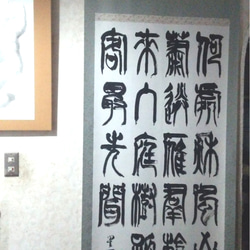 何處秋風至
蕭送雁羣朝
來入庭樹孤
客最先聞